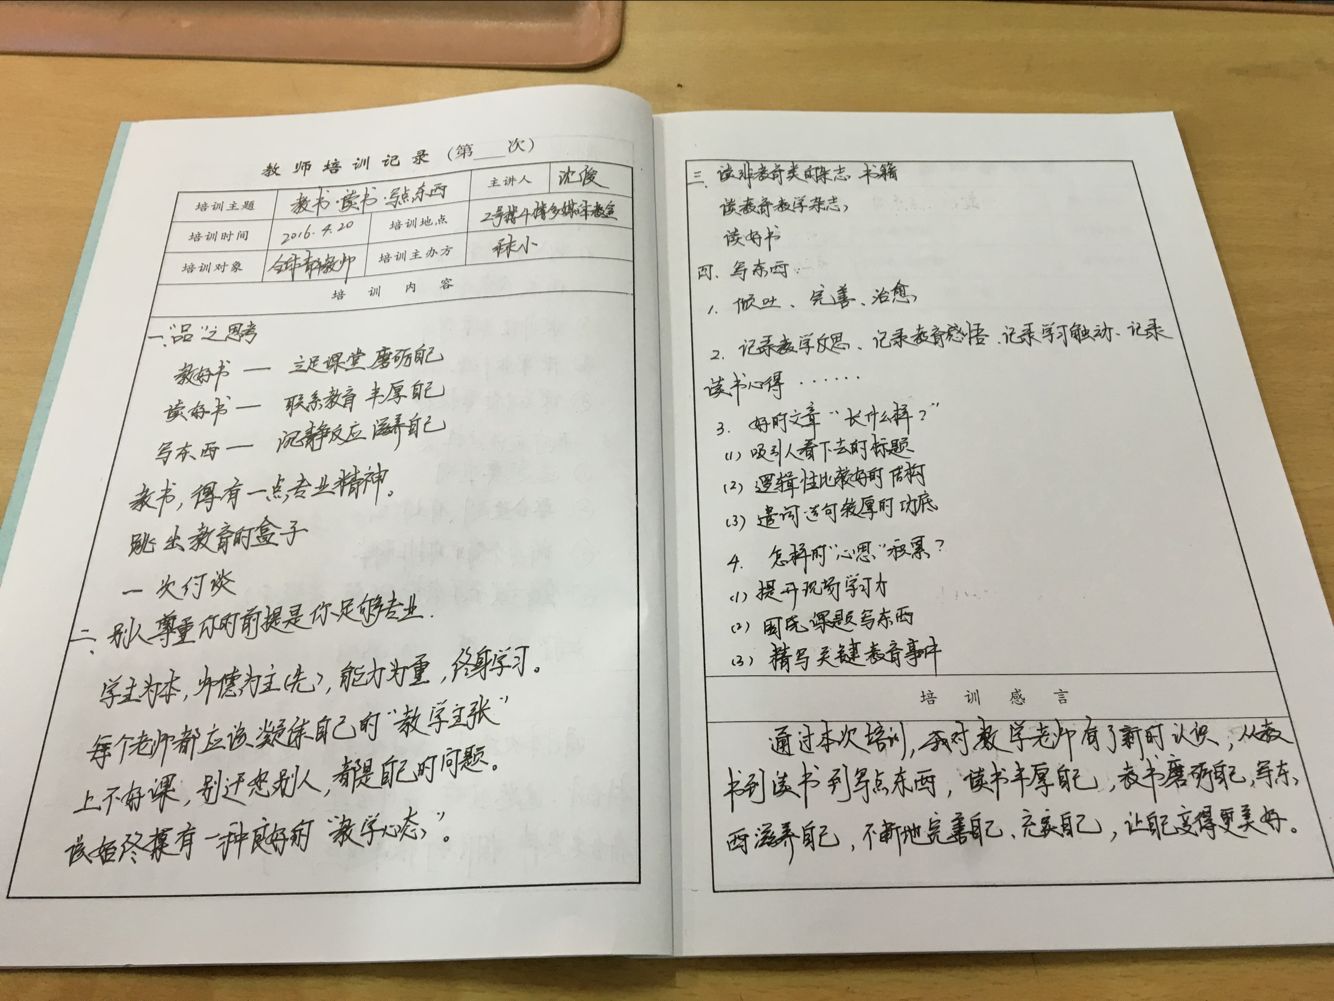 教师培训记录（第___次）
培训主题 教书·读书·写点东西 主讲人 沈俊
培训时间 2016.4.20 培训地点 2号楼4楼多媒体教室
培训对象 全体教师 培训主办方 小
培训内容
一、“品”之思考
教好书 — 立足课堂 磨砺自己
读好书 — 联系教育 丰厚自己
写东西 — 沉静反应 滋养自己
教书，得有一点专业精神。
跳出教育的盒子
一次付
二、别人尊重你的前提是你足够专业.
学生为本，师德为主(先)，能力为重，终身学习。
每个老师都应该凝练自己的“教学主张”
上不好课，别迁怒别人，都是自己的问题。
该始终揣有一种良好的“教学心态”。
三、读非教育类的杂志 书籍
读教育教学杂志，
读好书
四、写东西：
1. 倾吐、完善、治愈，
2. 记录教学反思、记录教育感悟、记录学习触动、记录
读书心得 ······
3. 好的文章“长什么样？”
(1) 吸引人看下去的标题
(2) 逻辑性比较好的结构
(3) 遣词造句较厚的功底
4. 怎样的“心思”积累？
(1) 提升现场学习力
(2) 课题写东西
(3) 精写关键教育事件
培训感言
通过本次培训，我对教学老师有了新的认识，从教
书到读书到写点东西，读书丰厚自己，教书磨砺自己，写东
西滋养自己，不断地完善自己、充实自己，让自己变得更美好。